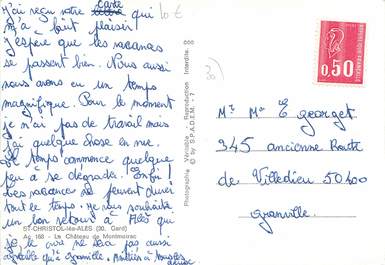 J'ai reçu votre carte qui 10 €
m'a fait plaisir!
J'espère que les vacances
se passent bien. Nous aussi
nous avons eu un temps
magnifique. Pour le moment
je n'ai pas de travail mais
j'ai quelque chose en vue.
Le temps commence quelque
peu à se dégrader. Enfin!
Les vacances ne peuvent durer
tout le temps. Je vous souhaite
un bon retour à Alès qui
je le crois ne sera pas aussi
agréable qu'à Granville.
ST-CHRISTOL-lès-ALÈS (30. Gard)
Ag 168 - Le Château de Montmoirac
Photographie Véritable - Reproduction Interdite.
© by S.P.A.D.E.M. - 7
30)
REPUBLIQUE FRANCAISE
0,50
Mr Me E Georget
345 ancienne Route
de Villedieu 50400
Granville.